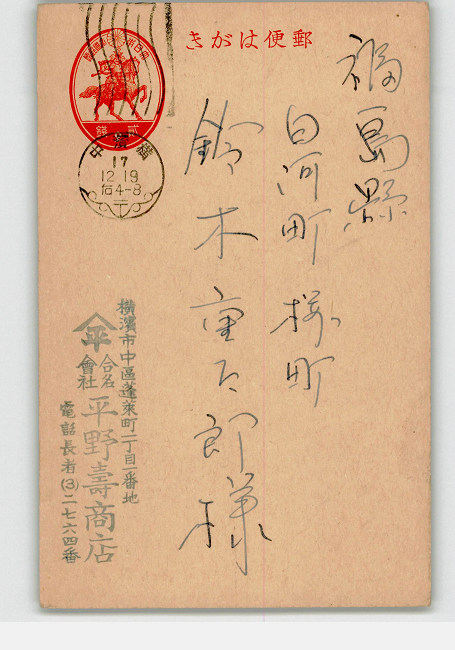 郵便はがき
福島縣
白河町桜町
鈴木重太郎様
横濱市中區蓬萊町一丁目一番地
平
合名會社
平野壽商店
電話長者(3)二七六四番
横濱中
17
12 19
后4-8
貳 錢